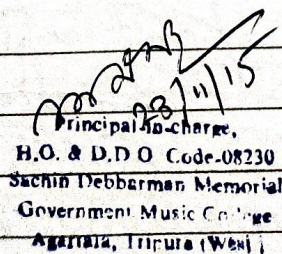 28/11/15
Principal-in-charge,
H.O. & D.D O Code-08230
Sachin Debbarman Memorial
Government Music College
Agartala, Tripura (West)